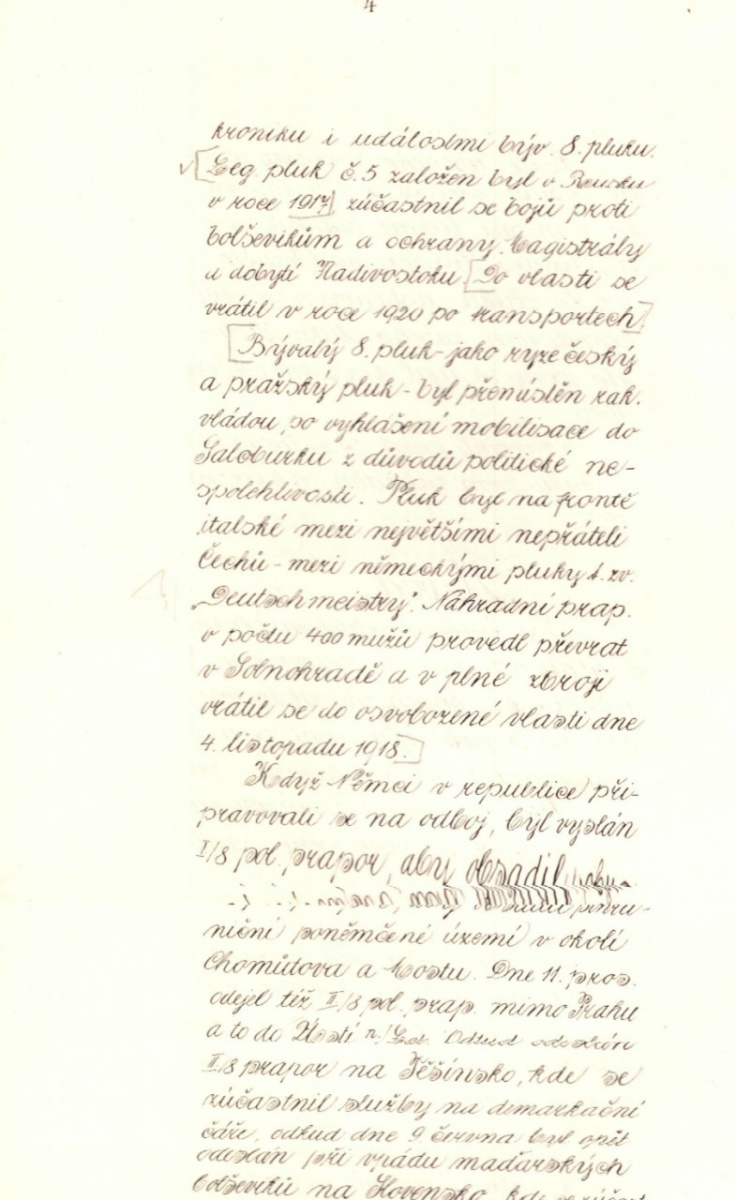 4
kroniku i událostmi býv. 8. pluku.
Leg. pluk č. 5 založen byl v Rusku
v roce 1917 zúčastnil se bojů proti
bolševikům a ochrany Magistrály
a dobytí Vladivostoku. Do vlasti se
vrátil v roce 1920 po transportech.
Bývalý 8. pluk - jako ryze český
a pražský pluk - byl přemístěn rak.
vládou, po vyhlášení mobilisace do
Salcburku z důvodů politické ne-
spolehlivosti. Pluk byl na frontě
italské mezi největšími nepřáteli
Čechů - mezi německými pluky t. zv.
„Deutschmeistry". Náhradní prap.
v počtu 400 mužů provedl převrat
v Solnohradě a v plné zbroji
vrátil se do osvobozené vlasti dne
4. listopadu 1918.
Když Němci v republice při-
pravovali se na odboj, byl vyslán
I/8 pol. prapor, aby obsadil
niční poněmčené území v okolí
Chomutova a Mostu. Dne 11. pros.
odejel též II/8 pol. prap. mimo Prahu
a to do Ústí n./Lab. Odtud
II/8 prapor na Těšínsko, kde se
zúčastnil služby na demarkační
čáře, odkud dne 9. června byl opět
odeslán při vpádu maďarských
bolševiků na Slovensko, kde se